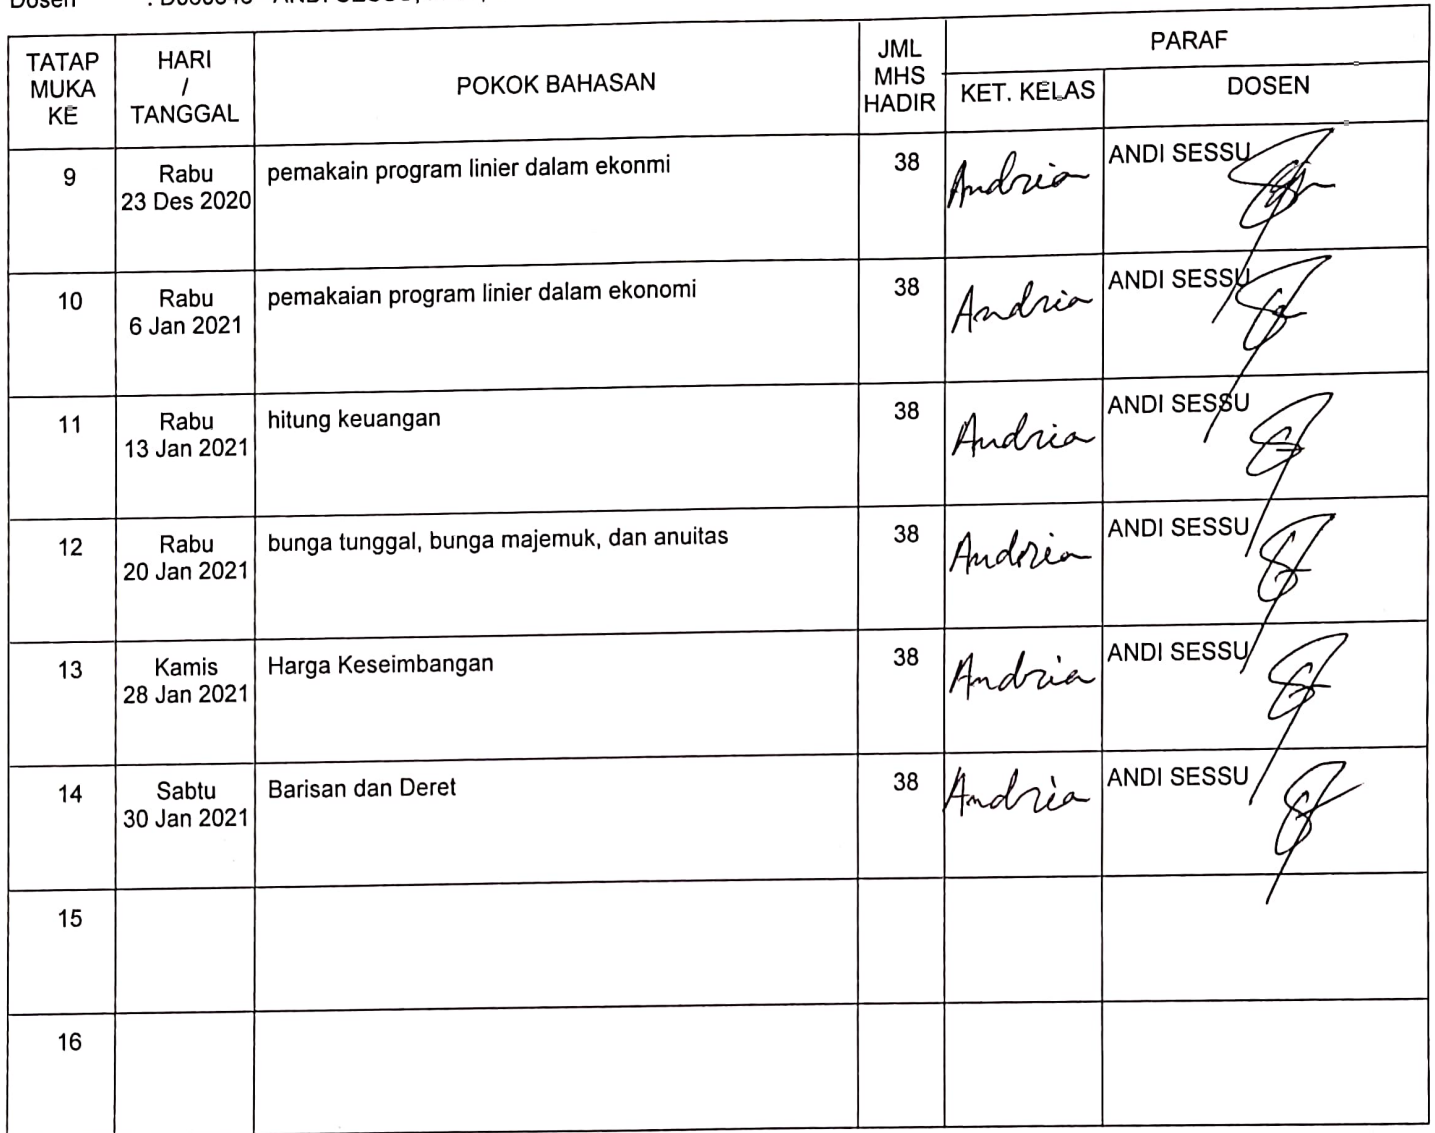 Dosen : ANDI SESSU,
TATAP MUKA KE
HARI / TANGGAL
POKOK BAHASAN
JML MHS HADIR
PARAF
KET. KELAS
DOSEN
9
Rabu
23 Des 2020
pemakain program linier dalam ekonmi
38
Andria
ANDI SESSU
10
Rabu
6 Jan 2021
pemakaian program linier dalam ekonomi
38
Andria
ANDI SESSU
11
Rabu
13 Jan 2021
hitung keuangan
38
Andria
ANDI SESSU
12
Rabu
20 Jan 2021
bunga tunggal, bunga majemuk, dan anuitas
38
Andria
ANDI SESSU
13
Kamis
28 Jan 2021
Harga Keseimbangan
38
Andria
ANDI SESSU
14
Sabtu
30 Jan 2021
Barisan dan Deret
38
Andria
ANDI SESSU
15
16